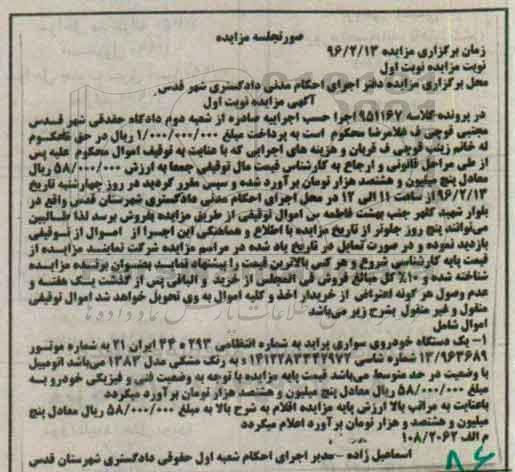 صورتجلسه مزایده
زمان برگزاری مزایده ۹۶/۲/۱۳
نوبت مزایده نوبت اول
محل برگزاری مزایده دفتر اجرای احکام مدنی دادگستری شهر قدس
آگهی مزایده نوبت اول
در پرونده کلاسه ۹۵۱۱۶۷ اجرا حسب اجراییه صادره از شعبه دوم دادگاه حقوقی شهر قدس
مجتبی قوچی ف غلامرضا محکوم است به پرداخت مبلغ ۱/۰۰۰/۰۰۰/۰۰۰ ریال در حق محکوم
له خانم زینب قوچی ف قربان و هزینه های اجرایی که با عنایت به توقیف اموال محکوم علیه پس
از طی مراحل قانونی و ارجاع به کارشناس قیمت مال توقیفی جمعا به ارزش ۵۸/۰۰۰/۰۰۰ ریال
معادل پنج میلیون و هشتصد هزار تومان برآورد شده و سپس مقرر گردید در روز چهارشنبه تاریخ
۹۶/۲/۱۳ از ساعت ۱۱ الی ۱۲ در محل اجرای احکام مدنی دادگستری شهرستان قدس واقع در
بلوار شهید کلهر جنب بهشت فاطمه س اموال توقیفی از طریق مزایده بفروش برسد لذا طالبین
می‌توانند پنج روز جلوتر از تاریخ مزایده با اطلاع و هماهنگی این اجرا از اموال توقیفی
بازدید نموده و در صورت تمایل در تاریخ یاد شده در مراسم مزایده شرکت نمایند مزایده از
قیمت پایه کارشناسی شروع و هر کس بالاترین قیمت را پیشنهاد نماید بعنوان برنده مزایده
شناخته شده و ۱۰٪ کل مبالغ فروش فی المجلس از خرید و الباقی پس از گذشت یک هفته و
عدم وصول هر گونه اعتراضی از خریدار اخذ و کلیه اموال به وی تحویل خواهد شد اموال توقیفی
منقول و غیر منقول بشرح زیر می‌باشد
اموال شامل
۱- یک دستگاه خودروی سواری پراید به شماره انتظامی ۲۹۳ص۴۴ ایران ۲۱ به شماره موتور
۱۳/۹۶۳۶۸۹ شماره شاسی ۱۴۱۲۲۸۳۳۴۲۹۷۷ و به رنگ مشکی مدل ۱۳۸۳ می‌باشد اتومبیل
با وضعیت در حد متوسط می‌باشد قیمت پایه مزایده با توجه به وضعیت فنی و فیزیکی خودرو به
مبلغ ۵۸/۰۰۰/۰۰۰ ریال معادل پنج میلیون و هشتصد هزار تومان برآورد میگردد
باعنایت به مراتب بالا ارزش پایه مزایده اقلام به شرح بالا به مبلغ ۵۸/۰۰۰/۰۰۰ ریال معادل پنج
میلیون و هشتصد و هزار تومان برآورد اعلام میگردد
م الف ۱۰۸/۲۰۶۲
اسماعیل زاده -مدیر اجرای احکام شعبه اول حقوقی دادگستری شهرستان قدس
۸۶